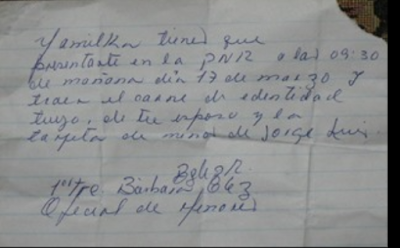 Yamilka tienes que
presentarte en la PNR a las 09:30
de mañana día 17 de marzo y
traer el carne de identidad
tuyo, de tu esposo y la
tarjeta de menor de Jorge Luis.
1er Bárbara
Oficial de Menores